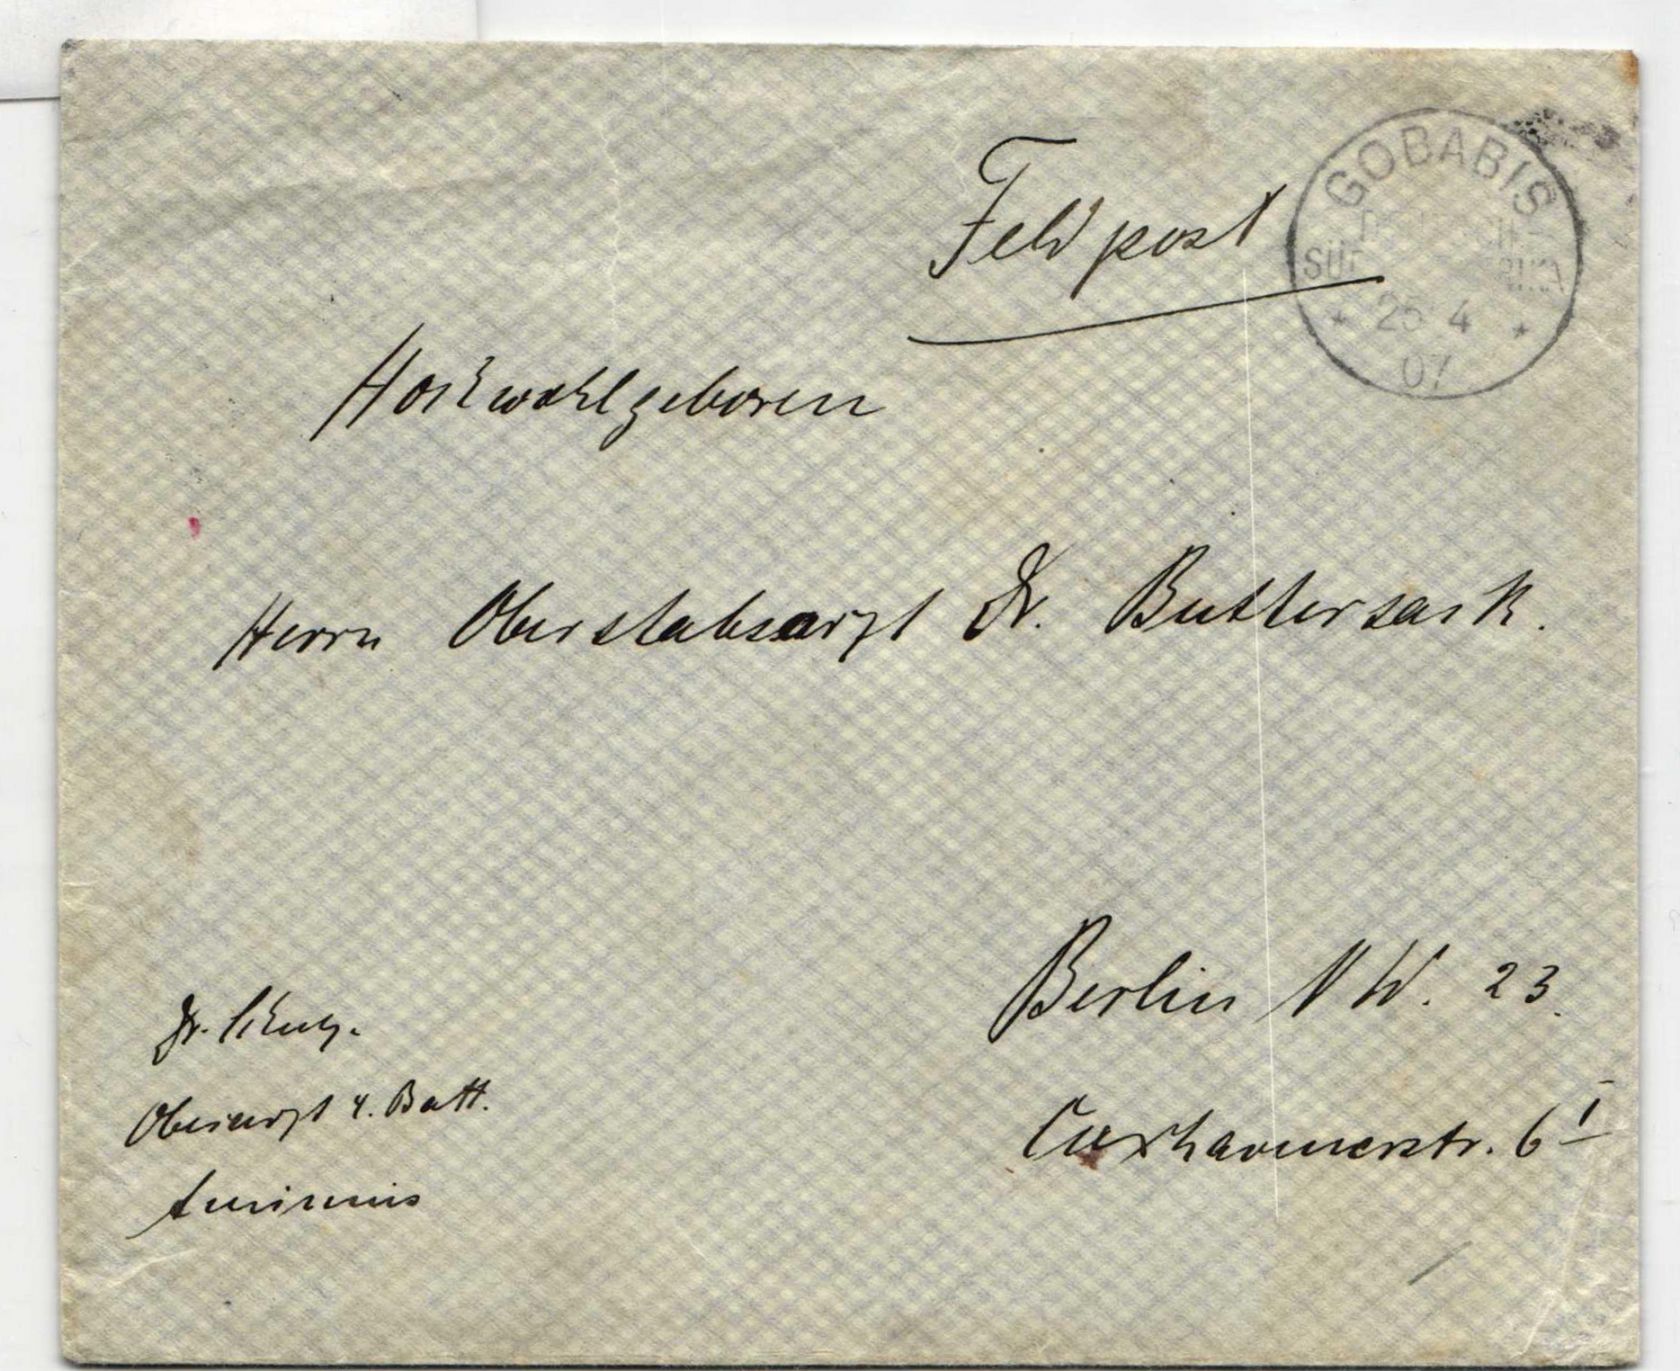 Feldpost
GOBABIS
SÜD
25 4
07
Hochwohlgeboren
Herrn Oberstabsarzt Dr. Buttersack.
Berlin NW. 23.
Cuxhavenerstr. 6 I
Dr.
Oberarzt 4. Batt.
Aminuis